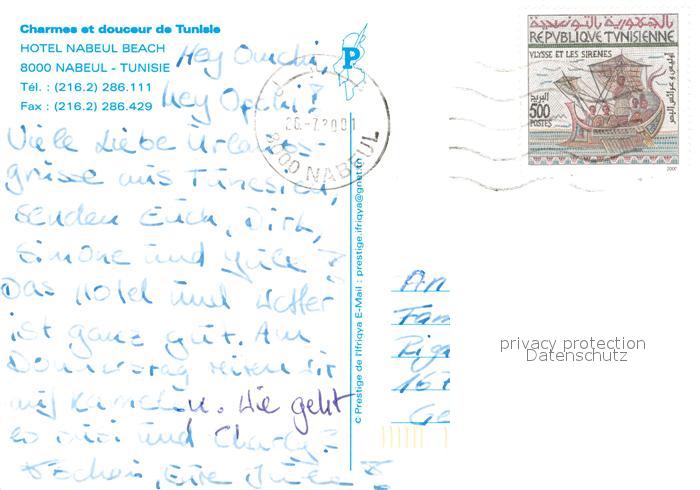 Charmes et douceur de Tunisie
HOTEL NABEUL BEACH
8000 NABEUL - TUNISIE
Tél. : (216.2) 286.111
Fax : (216.2) 286.429
Hey Omchi,
hey Opchi!
Viele liebe Urlaubs-
grüsse aus Tunesien,
senden Euch, Dirk,
Simone und Jule!
Das Hotel und Wetter
ist ganz gut. Am
Donnerstag reiten wir
mit Kamelen. Wie geht
es und Charly?
Tschau, Eure Jule!
P
26.-7.2001
8000 NABEUL
© Prestige de l'Ifriqya E-Mail : prestige.ifriqya@gnet.tn
الجمهورية التونسية
REPVBLIQVE TVNISIENNE
VLYSSE ET LES SIRENES
أوليس و عرائس البحر
البريد
500
POSTES
2000
An
Fam
Riga
167
Ge
privacy protection
Datenschutz